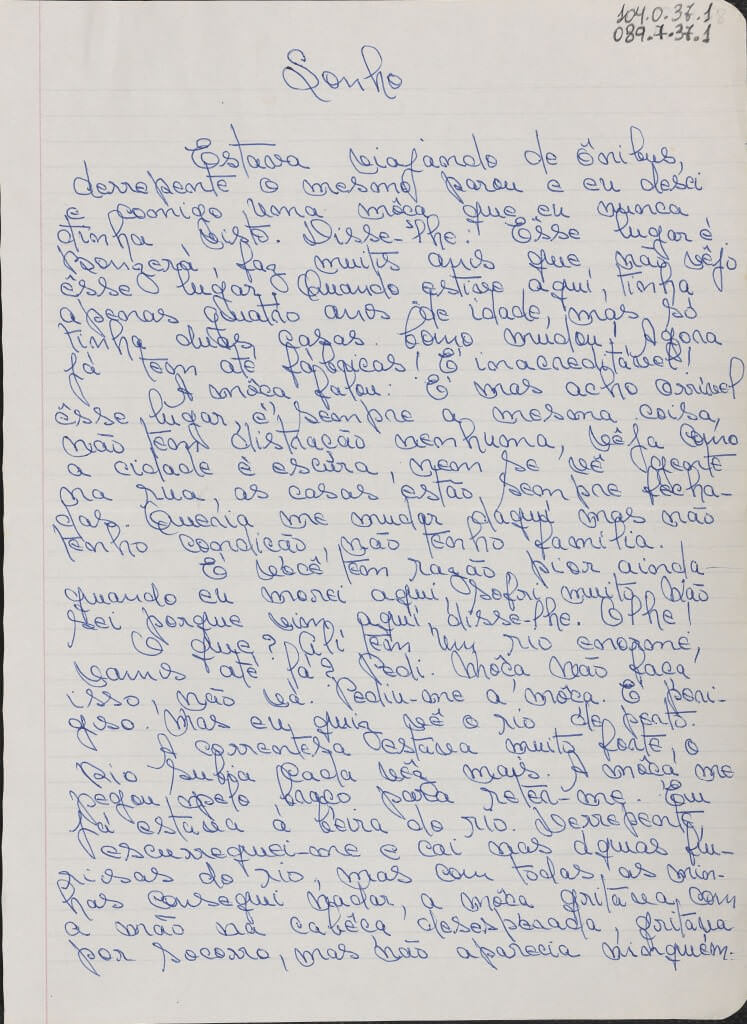 104.0.37.1
089.7.37.1
Sonho
Estava viajando de ônibus,
derrepente o mesmo parou e eu desci
e comigo uma môça que eu nunca
tinha visto. Disse-lhe: Êsse lugar é
faz muitos anos que não vêjo
êsse lugar, Quando estive aqui, tinha
apenas quatro anos de idade, mas só
tinha duas casas. Como mudou, Agora
já tem até fábricas! É inacreditável!
A môça falou: É mas acho orrivel
êsse lugar, é sempre a mesma coisa,
não tem distração nenhuma, vêja como
a cidade é escura, nem se vê gente
na rua, as casas estão sempre fecha-
das. Queria me mudar daqui mas não
tenho condição, não tenho familia.
É você tem razão pior ainda
quando eu morei aqui, sofri muito não
sei porque vim aqui, disse-lhe. Olhe!
O que? Ali tem um rio enorme,
vamos até lá? Pedi. Môça não faça
isso, não vá. Pediu-me a môça. É peri-
goso. Mas eu quiz vê o rio de perto.
A correntesa estava muito forte, o
rio subia cada vêz mais. A môça me
pegou pelo braço para reter-me. Eu
já estava à beira do rio. Derrepente
escurreguei-me e cai nas águas fu-
riosas do rio, mas com todas as min-
has consegui nadar, a môça gritava, com
a mão na cabêça desesperada, gritava
por socorro, mas não aparecia ninguém.